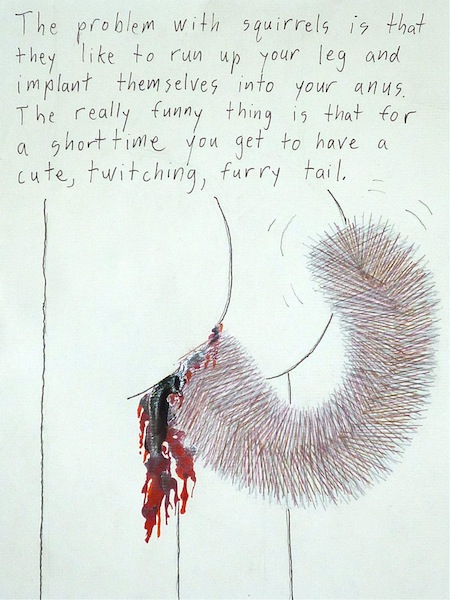 The problem with squirrels is that
they like to run up your leg and
implant themselves into your anus.
The really funny thing is that for
a short time you get to have a
cute, twitching, furry tail.